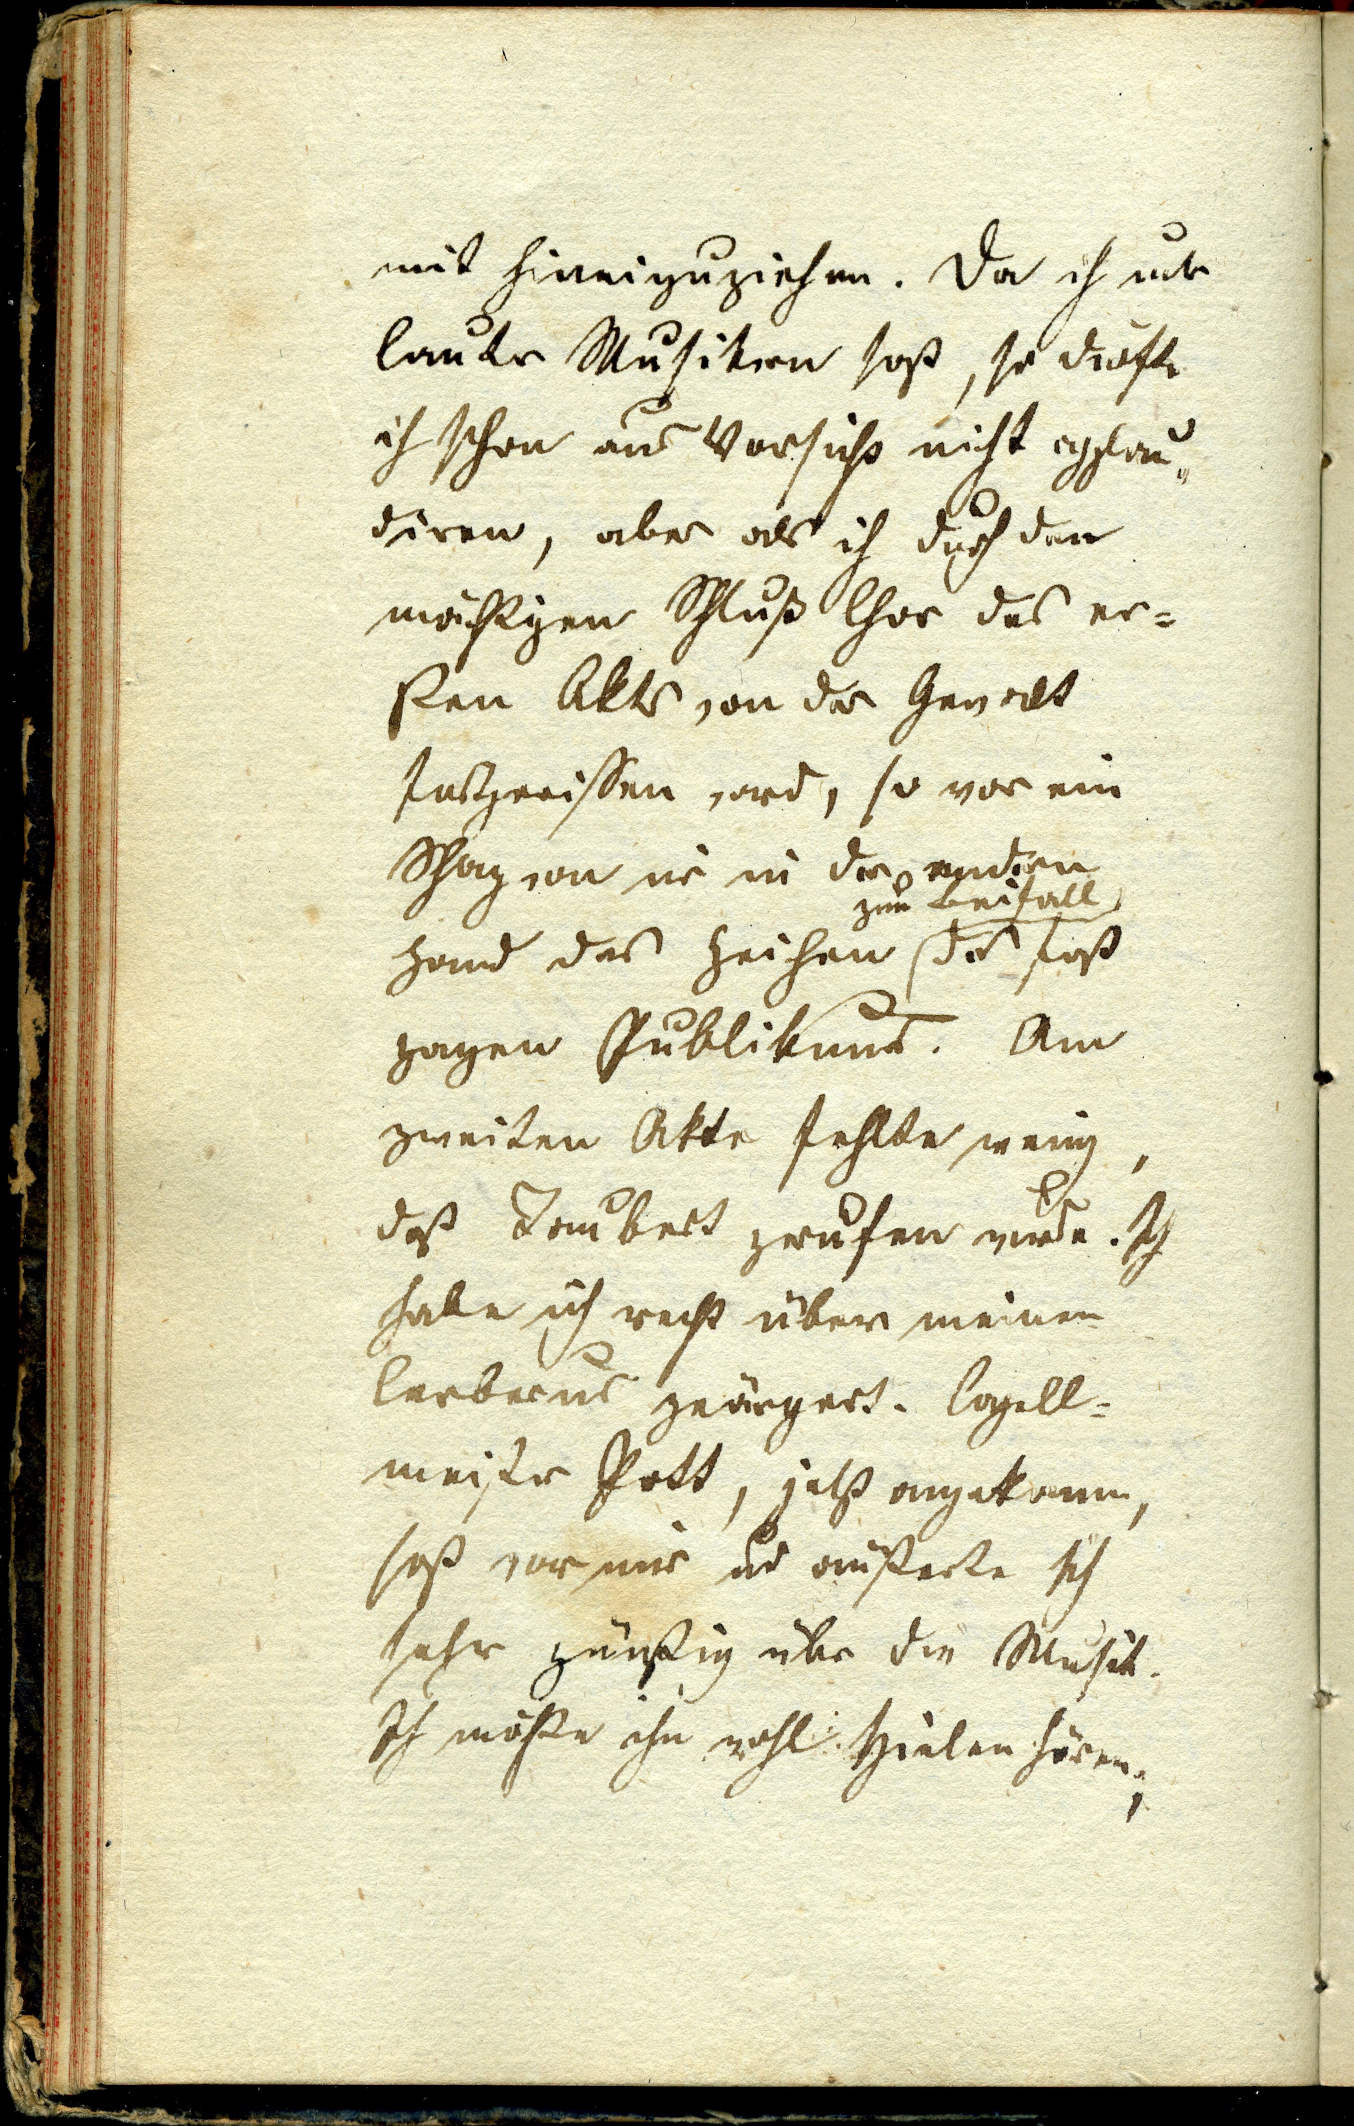 mit hineinzuziehen. Da ich unter
lauter Musikern saß, so durfte
ich schon aus Vorsicht nicht applau„
diren, aber als ich durch den
mächtigen Schluß Chor des er=
sten Akts von der Gewalt
fortgerissen ward, so war ein
Schlag von mir in der andern
zum Beifall
Hand das Zeichen des fast
ganzen Publikums. Am
zweiten Akte fehlte wenig,
daß Taubert gerufen wurde. Ich
habe mich recht über meinen
Cerberus geärgert. Capell=
meister Pott, jetzt angekommen,
saß vor mir und äußerte sich
sehr günstig über die Musik.
Ich möchte ihn wohl spielen hören;